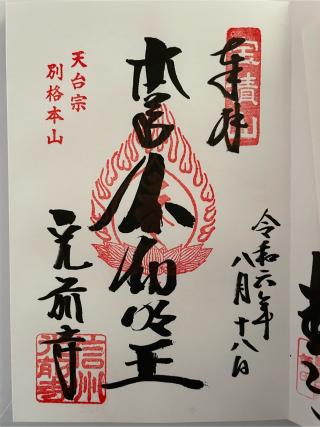 奉拝
宝積山
令和六年
八月十八日
本尊不動明王
天台宗
別格本山
光前寺
信州
光前寺